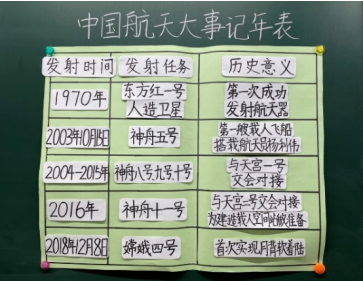 中国航天大事记年表
发射时间 发射任务 历史意义
1970年 东方红一号 第一次成功
人造卫星 发射航天器
2003年10月15日 神舟五号 第一艘载人飞船
搭载航天员杨利伟
2004-2015年 神舟八号九号十号 与天宫一号
交会对接
2016年 神舟十一号 与天宫一号交会对接
为建造载人空间站做准备
2018年12月8日 嫦娥四号 首次实现月背软着陆